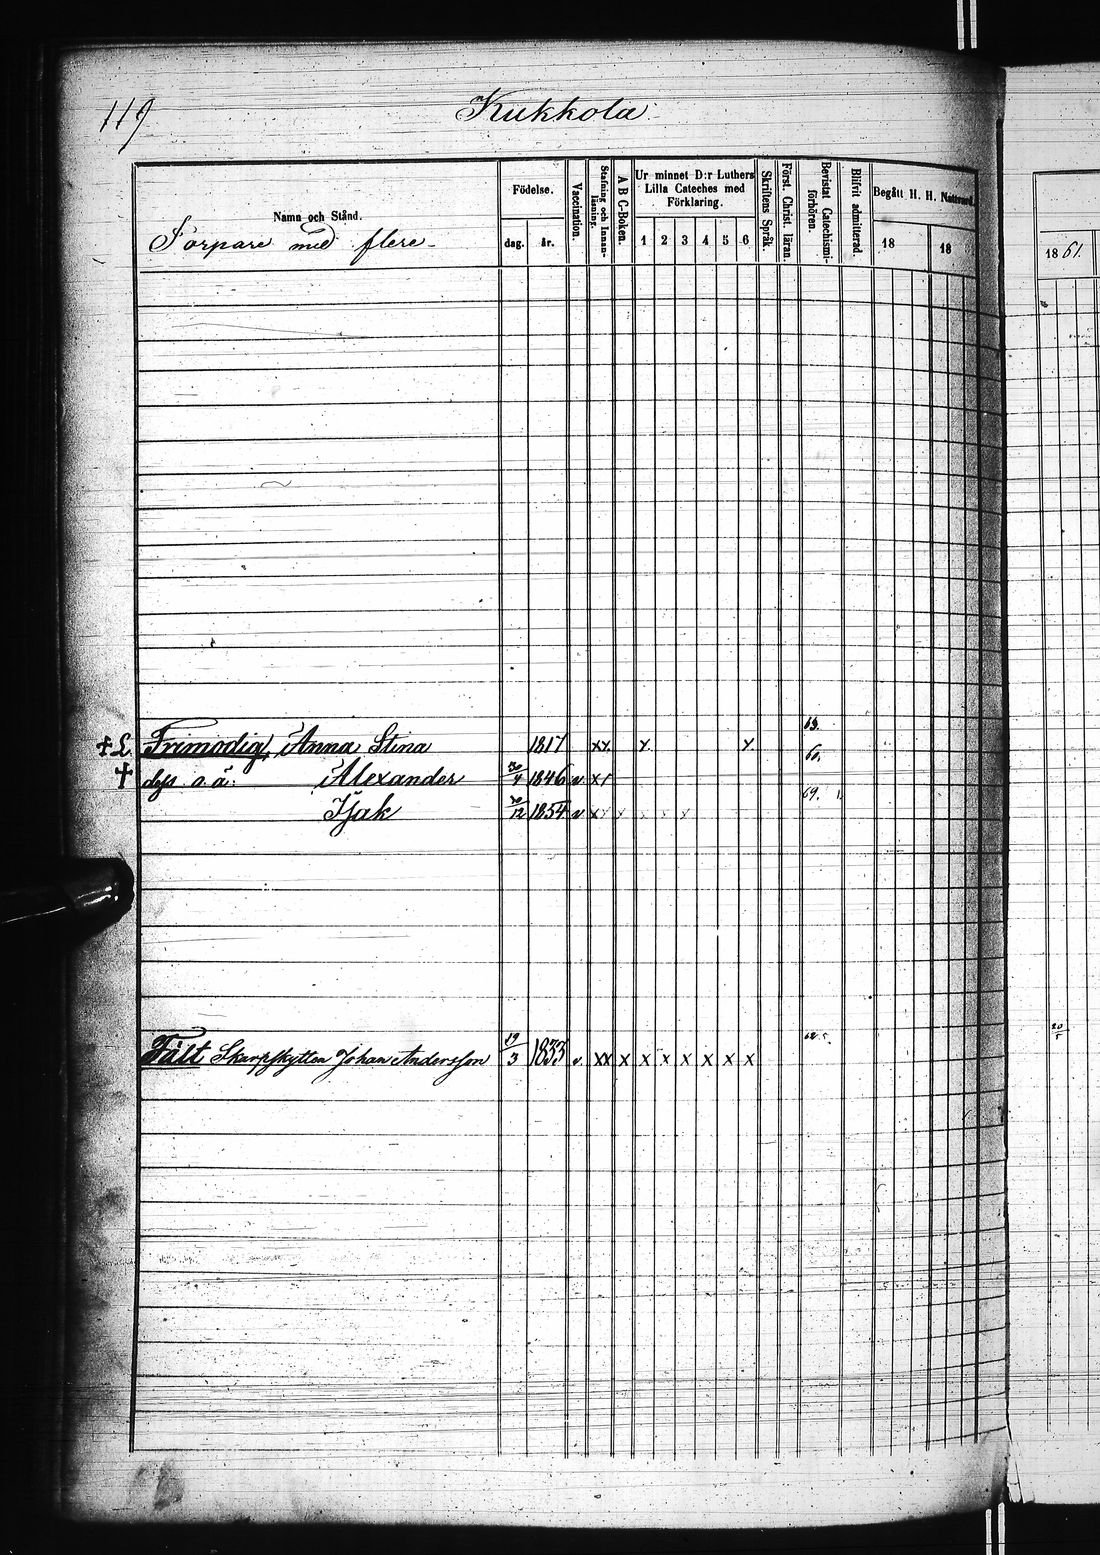 119
Kukkola
Namn och Stånd.
Torpare med flere
Födelse.
dag. år.
Vaccination.
Stafning och Innan-läsning.
A B C-Boken.
Ur minnet D:r Luthers
Lilla Cateches med
Förklaring.
1 2 3 4 5 6
Skriftens Språk.
Först. Christ. läran.
Bevistat Catechismi-förhören.
Blifvit admitterad.
Begått H. H. Nattvard.
18 18
1861.
‡ £ Frimodig, Anna Stina 1817 xx x x 63.
† dess o. ä. Alexander 30/4 1846 v x/ 60.
Isak 30/12 1854 v xx x x x x 69.
Fält Skarpskytten Johan Andersson 19/3 1833 v. xx x x x x x x x 62
20/5